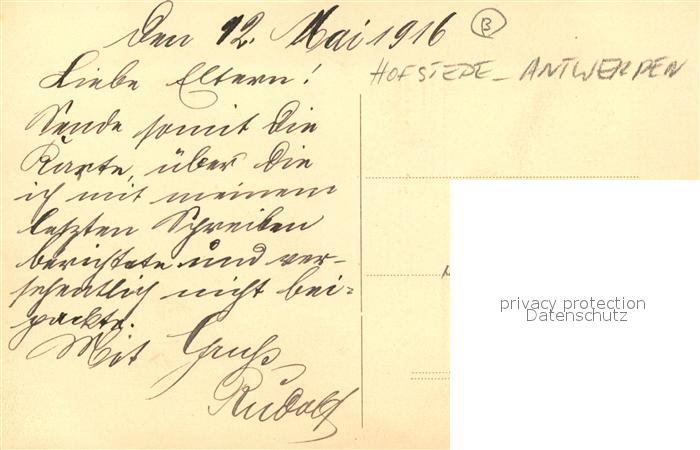 Den 12. Mai 1916
B
HOFSTEDE - ANTWERPEN
Liebe Eltern!
Sende somit die
Karte, über die
ich mit meinem
letzten Schreiben
berichtete und ver-
sehentlich nicht bei-
packte.
Mit Gruß
Rudolf
privacy protection
Datenschutz